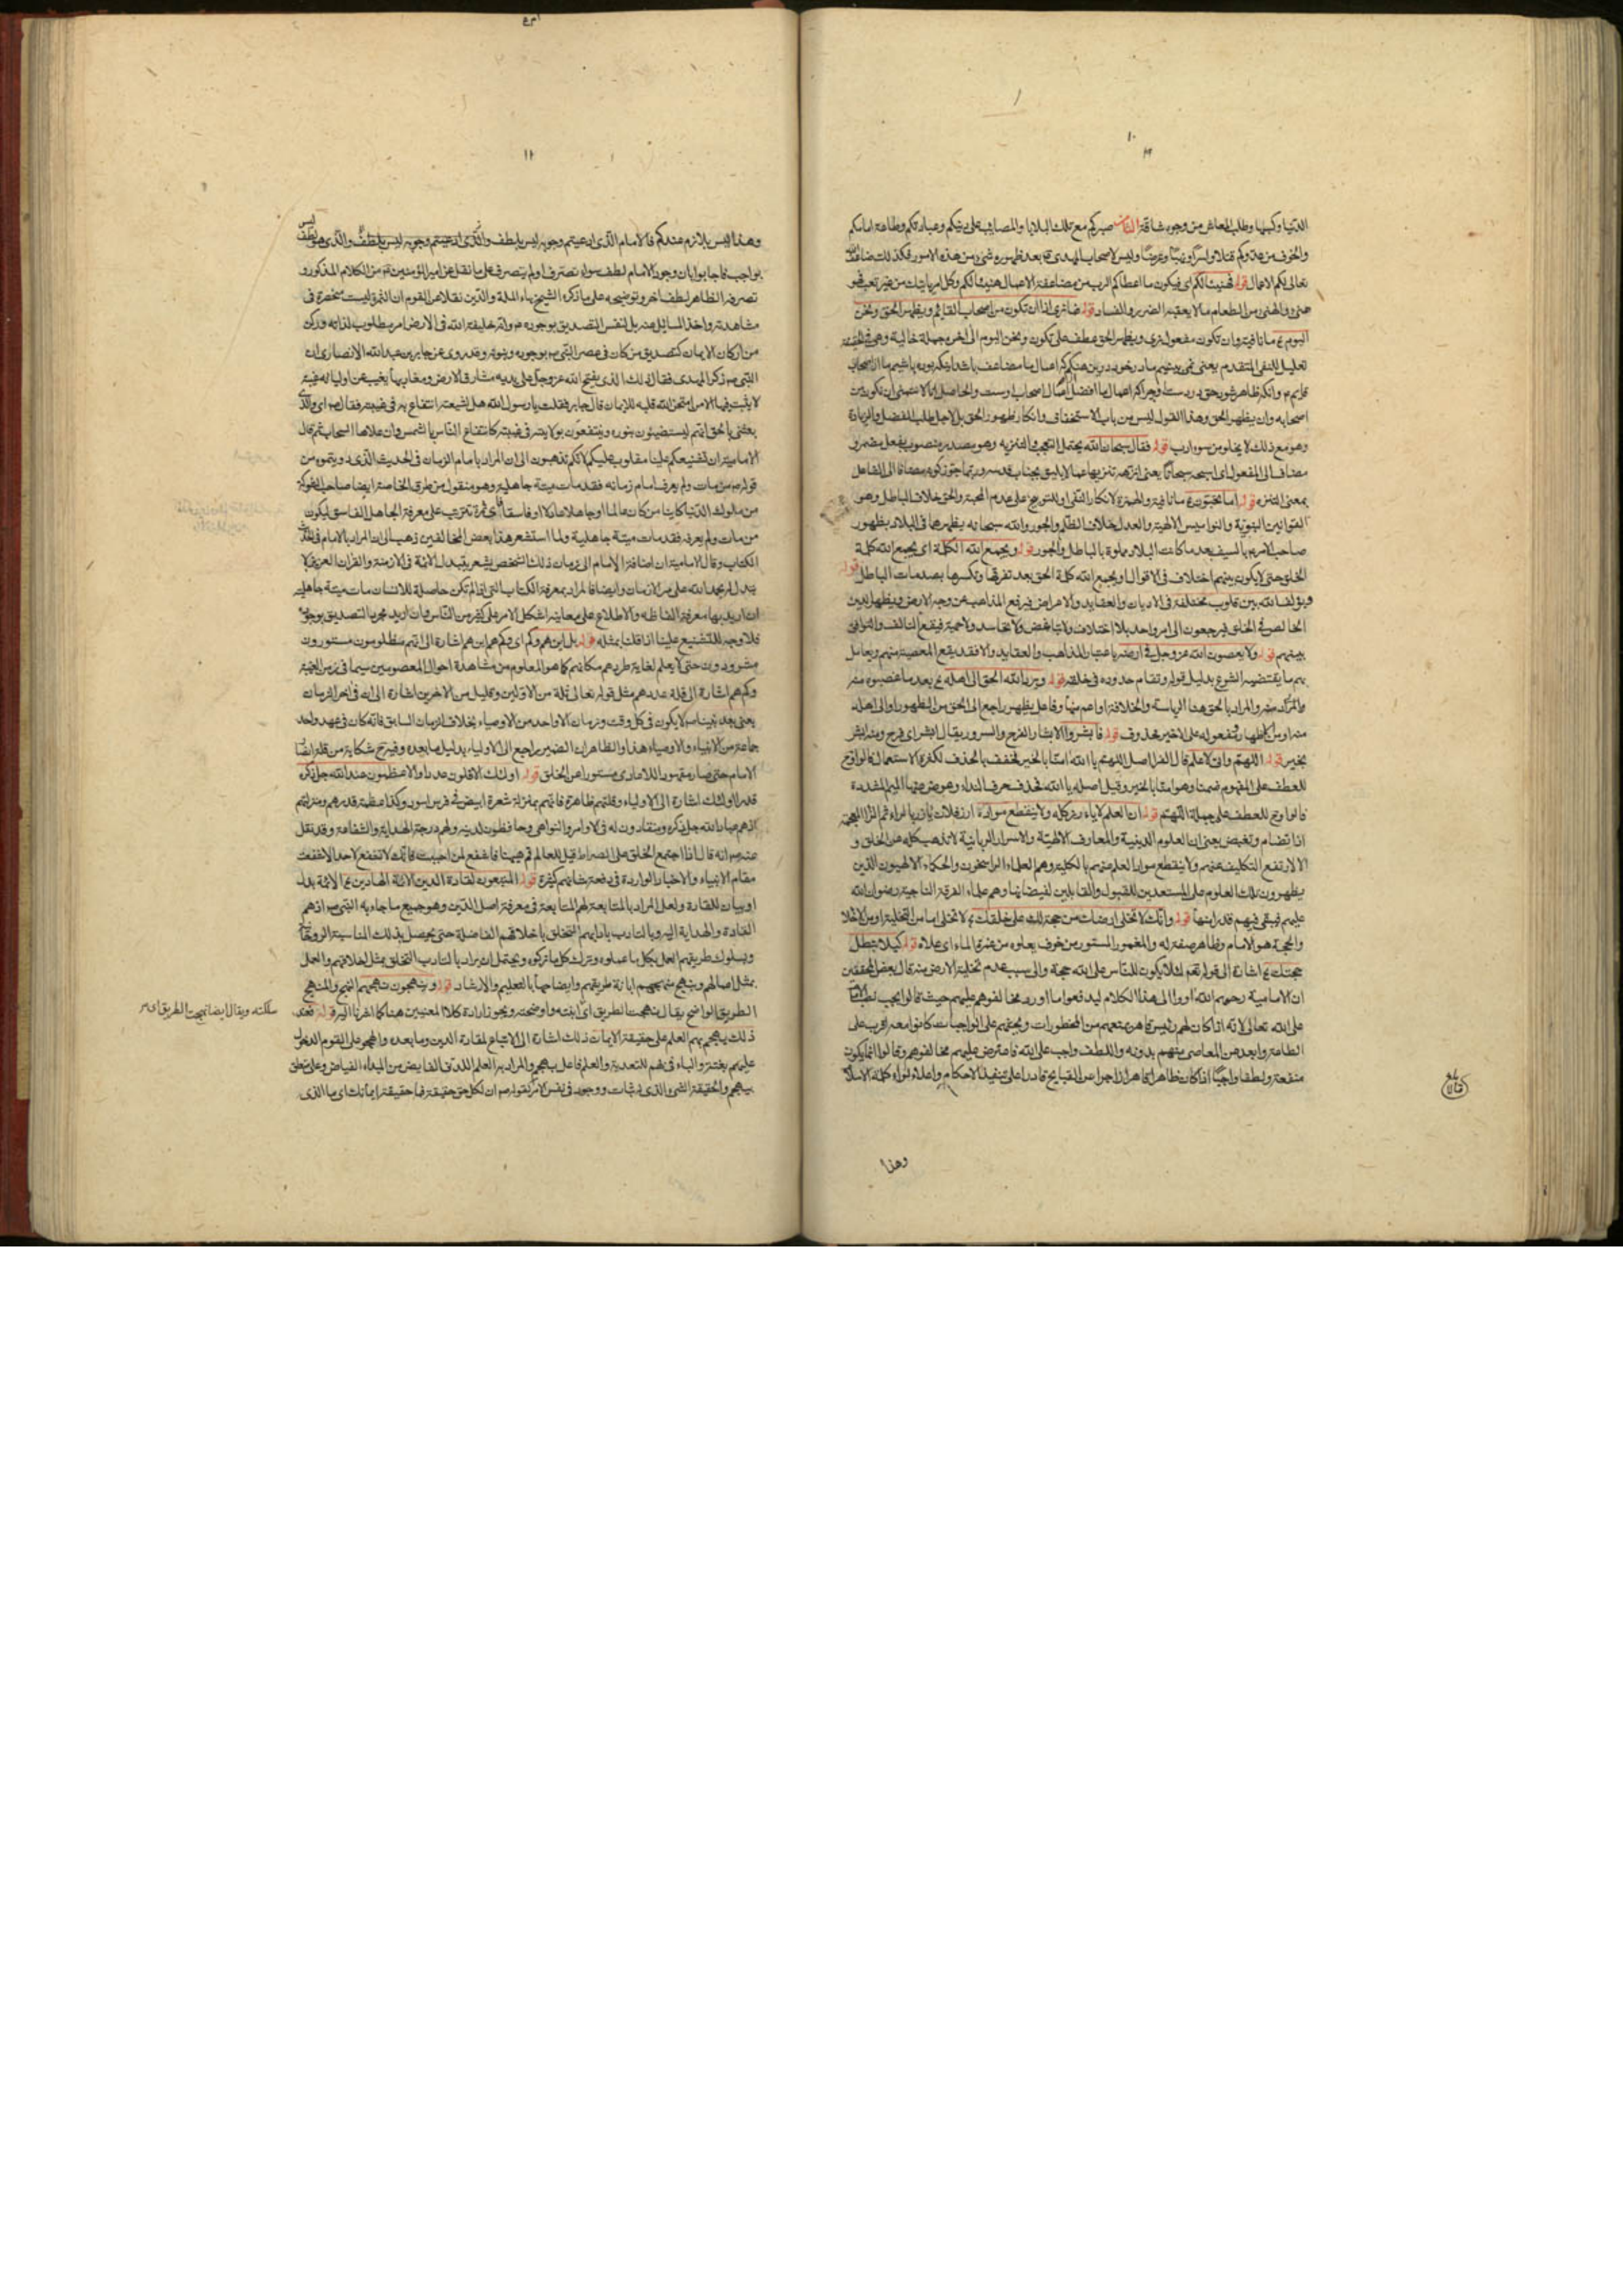 الدنيا وكبها وطلب المعاش من وجوه شاقة الثامن صبركم مع تلك البلايا والمصايب على دينكم وعبادتكم وطاعة امامكم
والخوف من عدوكم قتلا واسرا ونهبا وعرضا وليس لاصحاب المهدى ع بعد ظهوره شئ من هذه الامور فكذلك ضاعف الله
تعالى لكم الاعمال قوله فهنيئا لكم اى فيكون ما اعطاكم الرب من مضاعفة الاعمال هنيئا لكم وكل امر ياتيك من غير تعب فهو
هنئ والهنئ من الطعام ما لا يعقبه الضرر والفساد قوله فما نرى اذا ان نكون من اصحاب القائم ويظهر الحق ونحن
اليوم ع ما نافية وان نكون مفعول نرى ويظهر الحق عطف على نكون ونحن اليوم الى اخره جملة حالية وهى فى الحقيقة
تعليل للنفى المتقدم يعنى
اصحابه وان يظهر الحق وهذا القول ليس من باب الاستخفاف وانكار ظهور الحق بل لاجل طلب الفضل والزيادة
وهو مع ذلك لا يخلو من سوء ادب قوله فقال سبحان الله يحتمل التعجب والتنزيه وهو مصدر منصوب بفعل مضمر و
مضاف الى المفعول اى اسبحه سبحانا يعنى انزهه تنزيها عما لا يليق بجناب قدسه وربما جوز كونه مضافا الى الفاعل
بمعنى التنزه قوله اما تحبون ع ما نافية والهمزة لانكار النفى او للتوبيخ على عدم المحبة والحق خلاف الباطل وهو
القوانين النبوية والنواميس الالهية والعدل خلاف الظلم والجور والله سبحانه يظهرها فى البلاد بظهور
صاحب الامر بالسيف بعد ما كانت البلاد مملوة بالباطل والجور قوله ويجمع الله الكلمة اى يجمع الله كلمة
الخلق حتى لا يكون بينهم اختلاف فى الاقوال او يجمع الله كلمة الحق بعد تفرقها وتكسرها بصدمات الباطل قوله
ويؤلف الله بين قلوب مختلفة فى الاديان والعقايد والاعراض فيرفع المذاهب عن وجه الارض ويظهر الدين
الخالص فى الخلق فيرجعون الى امر واحد بلا اختلاف ولا تباغض ولا تحاسد ولا حمية فيقع التالف والتوافق
بينهم قوله ولا يعصون الله عز وجل فى ارضه باعتبار المذاهب والعقايد والا فقد يقع المعصية منهم ويعامل
بهم ما يقتضيه الشرع بدليل قوله وتقام حدوده فى خلقه قوله ويرد الله الحق الى اهله ع بعد ما غصبوه
والمراد بالحق هنا الرياسة والخلافة او اعم منها وفاعل يظهر راجع الى الحق من الظهور او الى اهله
من الاظهار ومفعوله على الاخير محذوف قوله فابشروا الابشار الفرح والسرور يقال ابشر اى فرح ومنه ابشر
بخير قوله اللهم وانى لاعلم قال الفراء اصل اللهم يا الله امنا بالخير فخفف بالحذف لكثرة الاستعمال
للعطف على المفهوم ضمنا وهو امنا بالخير وقيل اصله يا الله فحذف حرف النداء وعوض عنها الميم المشددة
فالواو ع للعطف على جملة اللهم قوله ان العلم لا يارز كله ولا ينقطع مواده ارز فلان يارز بالراء ثم الزا المعجمة
اذا تضام وتقبض يعنى ان العلوم الدينية والمعارف الالهية والاسرار الربانية لا تذهب كله عن الخلق و
الا ارتفع التكليف عنهم ولا ينقطع مواد العلم عنهم بالكلية وهم العلماء الراسخون والحكماء الالهيون الذين
يظهرون تلك العلوم على المستعدين للقبول والقابلين لفيضانها وهم علماء الفرقة الناجية رضوان الله
عليهم فيبقى فيهم قدر منها قوله وانك لا تخلى ارضك من حجة لك على خلقك ع لا تخلى اما من التخلية او من الاخلاء
والحجة هو الامام وظاهر صفة له والمغمور المستور من خوف يعلوه من غمره الماء اى علاه قوله كيلا تبطل
حجتك ع اشارة الى قوله تعالى لئلا يكون للناس على الله حجة والى سبب عدم تخلية الارض منه قال بعض المحققين
ان الامامية رحمهم الله اوردوا هذا الكلام ليدفعوا ما اورد مخالفوهم عليهم حيث قالوا يجب نصب الامام
على الله تعالى لانه اذا كان لهم رئيس قاهر يمنعهم من المحظورات ويحثهم على الواجبات كانوا معه اقرب الى
الطاعة وابعد عن المعاصى منهم بدونه واللطف واجب على الله فاعترض عليهم مخالفوهم وقالوا انما يكون
منفعة ولطفا واجبا اذا كان ظاهرا قاهرا زاجرا عن القبايح قادرا على تنفيذ الاحكام واعلاء لواء كلمة الاسلام
وهذا
وهذا ليس بلازم عندكم فالامام الذى ادعيتم وجوبه ليس بلطف والذى هو لطف ليس
بواجب فاجابوا بان وجود الامام لطف سواء تصرف او لم يتصرف على ما نقل عن امير المؤمنين ع من الكلام المذكور و
تصرفه الظاهر لطف اخر وتوضيحه على ما ذكره الشيخ بهاء الملة والدين نقلا عن القوم ان الثمرة ليست منحصرة فى
مشاهدته واخذ المسايل عنه بل نفس التصديق بوجوده ع وانه خليفة الله فى الارض امر مطلوب لذاته وركن
من اركان الايمان كتصديق من كان فى عصر النبى ص بوجوده ونبوته وقد روى عن جابر بن عبد الله الانصارى ان
النبى ص ذكر المهدى فقال ذلك الذى يفتح الله عز وجل على يديه مشارق الارض ومغاربها يغيب عن اوليائه غيبة
لا يثبت فيها الا من امتحن الله قلبه للايمان قال جابر فقلت يا رسول الله هل لشيعته انتفاع به فى غيبته فقال ص اى والذى
بعثنى بالحق انهم ليستضيئون بنوره وينتفعون بولايته فى غيبته كانتفاع الناس بالشمس وان علاها السحاب ثم قال
الامامية ان تشنيعكم علينا مقلوب عليكم لانكم تذهبون الى ان المراد بامام الزمان فى الحديث الذى رويتموه من
قوله ص من مات ولم يعرف امام زمانه فقد مات ميتة جاهلية وهو منقول من طرق الخاصة ايضا صاحب الشوكة
من ملوك الدنيا كاينا من كان عالما او جاهلا عادلا او فاسقا فاى ثمرة تترتب على معرفة الجاهل الفاسق ليكون
من مات ولم يعرفه فقد مات ميتة جاهلية ولما استشعر هذا بعض المخالفين ذهب الى ان المراد بالامام فى الحديث
الكتاب وقال الامامية ان اضافة الامام الى زمان ذلك الشخص يشعر بتبدل الائمة فى الازمنة والقران العزيز لا
يتبدل بحمد الله على مر الازمان وايضا فالمراد بمعرفة الكتاب التى اذا لم تكن حاصلة للانسان مات ميتة جاهلية
ان اريد بها معرفة الفاظه والاطلاع على معانيه اشكل الامر على كثير من الناس وان اريد مجرد التصديق بوجوده
فلا وجه للتشنيع علينا اذا قلنا بمثله قوله بل اين هم وكم اى وكم هم اين هم اشارة الى انهم مظلومون مستورون
مشرودون حتى لا يعلم لغاية طردهم مكانهم كما هو المعلوم من مشاهدة احوال المعصومين سيما فى زمن الغيبة
وكم هم اشارة الى قلة عددهم مثل قوله تعالى ثلة من الاولين وقليل من الاخرين اشارة الى انه فى اخر الزمان
يعنى بعد نبينا ص لا يكون فى كل وقت وزمان الا واحد من الاوصياء بخلاف الزمان السابق فانه كان فى عهد واحد
جماعة من الانبياء والاوصياء هذا والظاهر ان الضمير راجع الى الاولياء بدليل ما بعده وفيه ع شكاية من قلة انصار
الامام حتى صار مقهورا للاعادى مستورا عن الخلق قوله اولئك الاقلون عددا والاعظمون عند الله جل ذكره
قدرا اولئك اشارة الى الاولياء وقلتهم ظاهرة فانهم بمنزلة شعرة ابيض فى فرس اسود وكذا عظمة قدرهم ومنزلتهم
اذ هم عباد الله جل ذكره ومنقادون له فى الاوامر والنواهى وحافظون لدينه ولهم درجة الهداية والشفاعة وقد نقل
عنه ص انه قال اذا اجتمع الخلق على الصراط قيل للعالم قم هيهنا فاشفع لمن احببت فانك لا تشفع لاحد الا شفعت
مقام الانبياء والاخبار الواردة فى رفعة شانهم كثيرة قوله المتبعون لقادة الدين الائمة الهادين ع الائمة بدل
او بيان للقادة ولعل المراد بالمتابعة لهم المتابعة فى معرفة اصل الدين وهو جميع ما جاء به النبى ص اذ هم
القادة والهداية اليه وبالتادب بادابهم التخلق باخلاقهم الفاضلة حتى يحصل بذلك المناسبة الروحانية
وبسلوك طريقهم العمل بكل ما عملوه وترك كل ما تركوه ويحتمل ان يراد بالتادب التخلق بمثل اخلاقهم والعمل
بمثل اعمالهم وبنهج منهجهم ابانة طريقهم وايضاحها بالتعليم والارشاد قوله وينهجون نهجهم النهج والمنهج
الطريق الواضح يقال نهجت الطريق اى ابنته واوضحته ويجوز ارادة كلا المعنيين هنا كما اشرنا اليه قوله فعند
سلكته ويقال ايضا نهجت الطريق اى
ذلك يهجم بهم العلم على حقيقة الايمان ذلك اشارة الى الاتباع لقادة الدين وما بعده والهجوم على القوم الدخول
عليهم بغتة والباء فى بهم للتعدية والعلم فاعل يهجم والمراد به العلم اللدنى الفايض من المبداء الفياض وعلى متعلق
بيهجم والحقيقة الشئ الذى له ثبات ووجود فى نفس الامر لقوله ص ان لكل حق حقيقة فما حقيقة ايمانك اى ما الذى